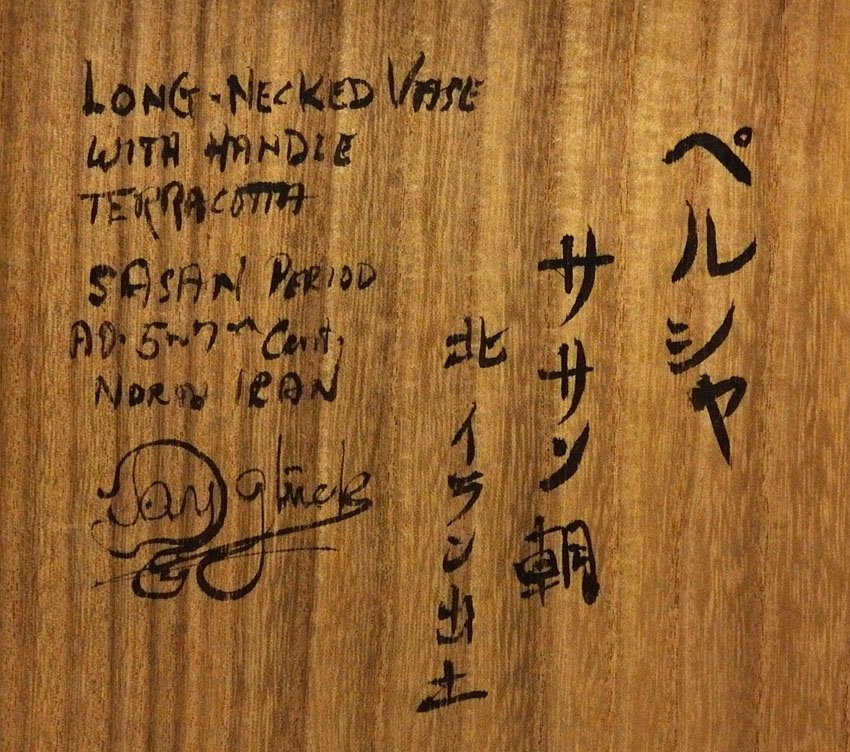 LONG-NECKED VASE
WITH HANDLE
TERRACOTTA
SASAN PERIOD
AD. 5~7th Cent.
NORTH IRAN
Jay Glück
ペルシャ
ササン朝
北イラン出土